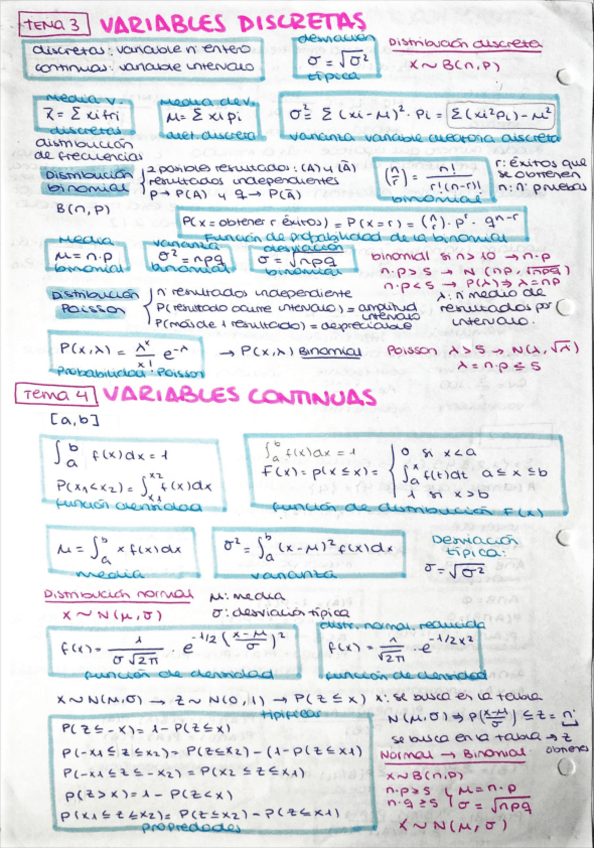 TEMA 3 VARIABLES DISCRETAS
discretas: variable nº entero
continuas: variable intervalo
desviación
σ = √σ²
típica
Distribución discreta
X ~ B(n,p)
media v.
x̄ = Σ xi fri
discretas
distribución
de frecuencias
media dev.
μ = Σ xi pi
σ² = Σ (xi-μ)² · Pi = Σ(xi²Pi) - μ²
varianza variable aleatoria discreta
Distribución
binomial
B(n,p)
2 posibles resultados: (A) y (Ā)
resultados independientes
p → P(A) y q → P(Ā)
(n r) = n! / r!(n-r)!
binomial
r: éxitos que
se obtienen
n: nº pruebas
P(x = obtener r éxitos) = P(x=r) = (n r) · p^r · q^n-r
Función de probabilidad de la binomial
media
μ = n·p
binomial
varianza
σ² = npq
binomial
desviación
σ = √npq
binomial
binomial si n > 10 → n·p
n·p > 5 → N (np, √npq)
n·p < 5 → P(λ) → λ = np
Distribución
Poisson
nº resultados independiente
P(resultado ocurre intervalo) = amplitud intervalo
P(más de 1 resultado) = depreciable
λ: nº medio de
resultados por
intervalo.
P(x,λ) = λ^x / x! e^-λ
Probabilidad Poisson
→ P(x,λ) Binomial
Poisson λ > 5 → N(λ, √λ)
λ = n·p ≤ 5
Tema 4 VARIABLES CONTINUAS
[a,b]
∫_a^b f(x)dx = 1
P(x1<x2) = ∫_x1^x2 f(x)dx
función densidad
∫_a^b f(x)dx = 1
F(x) = P(x≤x) =
0 si x<a
∫_a^x f(t)dt a≤x≤b
1 si x>b
función de distribución F(x)
μ = ∫_a^b x f(x)dx
media
σ² = ∫_a^b (x-μ)² f(x)dx
varianza
Desviación
típica:
σ = √σ²
Distribución normal
X ~ N(μ,σ)
μ: media
σ: desviación típica
f(x) = 1 / σ√2π · e^-1/2 ((x-μ)/σ)²
función de densidad
distr. normal reducida
f(x) = 1 / √2π · e^-1/2x²
función de densidad
X ~ N(μ,σ) → Z ~ N(0,1) → P(Z≤x) x: se busca en la tabla
tipificar
P(Z≤-x) = 1 - P(Z≤x)
P(-x1≤Z≤x2) = P(Z≤x2) - (1-P(Z≤x1)
P(-x1≤Z≤-x2) = P(x2≤Z≤x1)
P(Z>x) = 1 - P(Z<x)
P(x1≤Z≤x2) = P(Z≤x2) - P(Z≤x1)
propiedades
N(μ,σ) ⇒ P((x-μ)/σ) ≤ Z = nº
se busca en la tabla → Z
Normal → Binomial
X ~ B(n,p)
n·p ≥ 5
n·q ≥ 5
μ = n·p
σ = √npq
X ~ N(μ,σ)